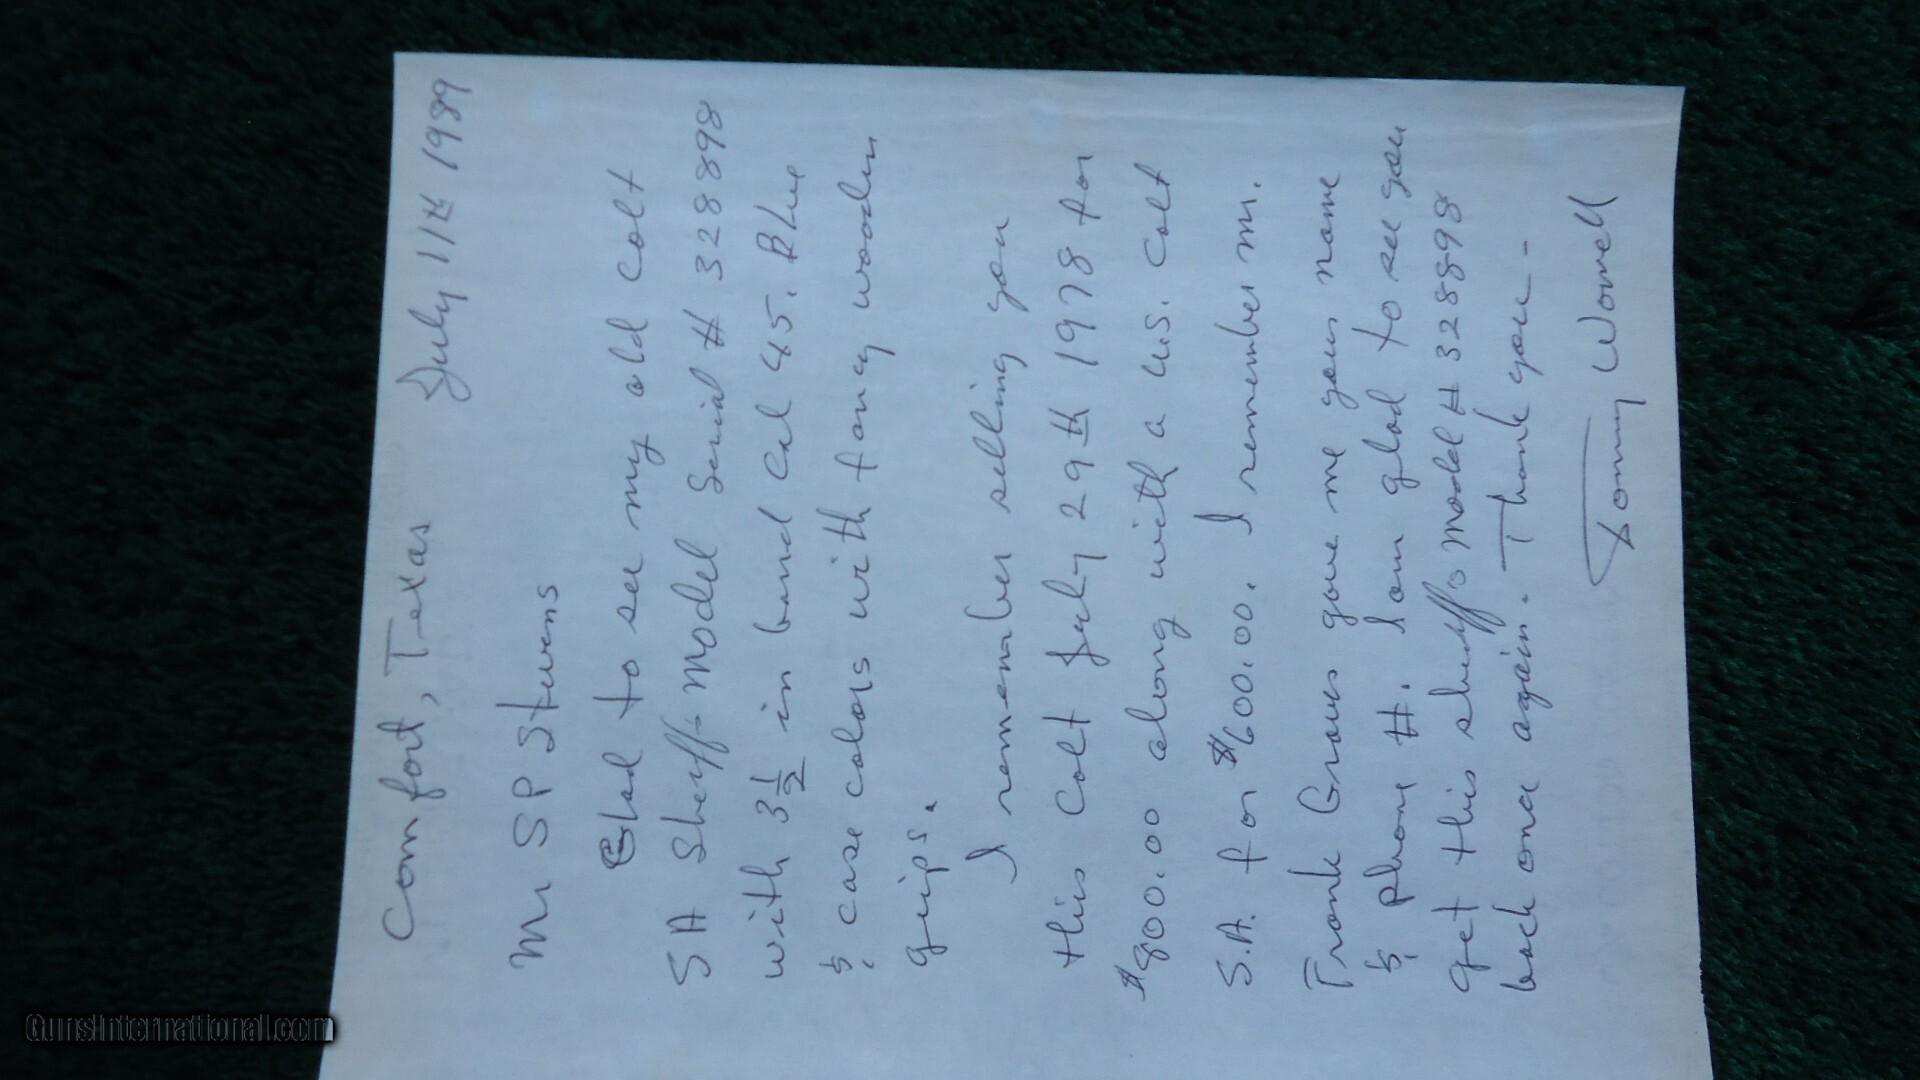 Comfort, Texas July 11th 1989
Mr SP Stevens
Glad to see my old Colt
SA Sheriff Model Serial # 328898
with 3 1/2 in barrel Cal 45. Blue
& case colors with fancy wooden
grips.
I remember selling you
this Colt July 29th 1978 for
$800.00 along with a U.S. Colt
S.A. for $600.00. I remember Mr.
Frank Graves gave me your name
& phone #. I am glad to see you
get this sheriff's model # 328898
back once again. Thank you -
Tommy
GunsInternational.com